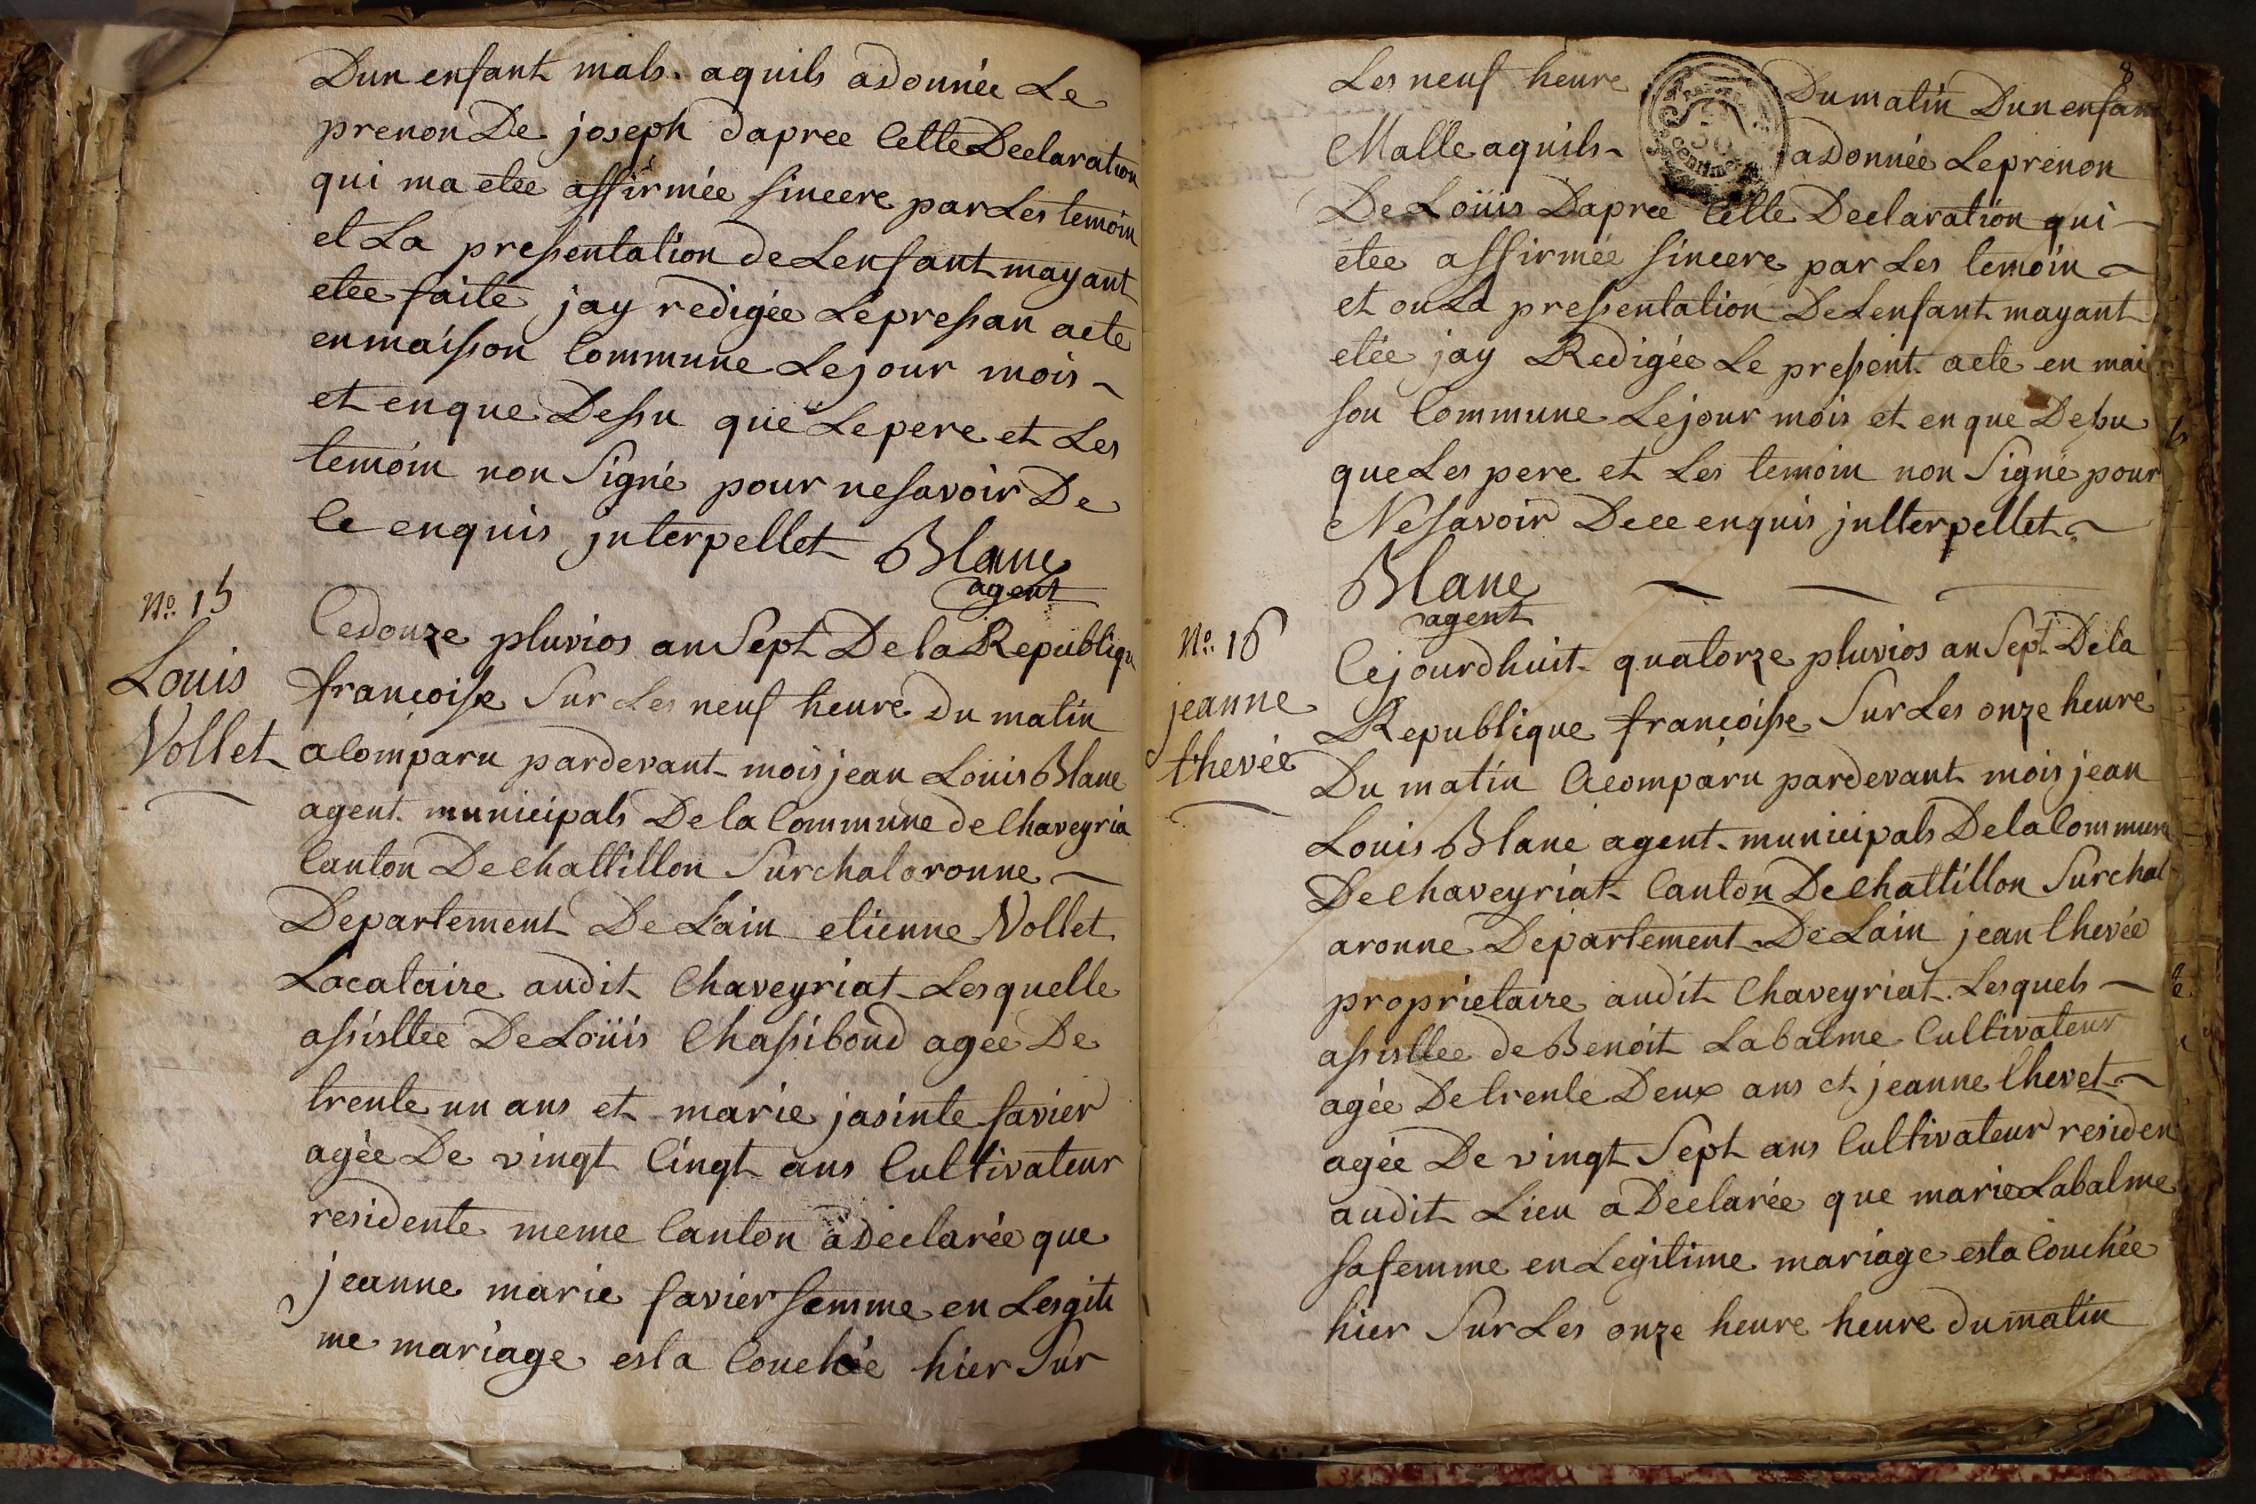 Dun enfant mals. aquils adonnée Le
prenon De joseph dapree Cette Declaration
qui ma etee affirmée sincere par Les temoin
et La pressentation de Lenfant mayant
etee faite jay redigée Le pressan acte
en maisson Commune Le jour mois
et en que Dessu que Le pere et Les
temoin non Signé pour ne savoir De
Ce enquis jnterpellet Blanc
agent
No. 15
Louis
Vollet
Ce douze pluvios an Sept De la Republiqu
françoisse Sur Les neuf heure Du matin
a Comparu pardevant mois jean Louis Blanc
agent municipals De la Commune de Chaveyria
Canton De Chattillon Sur chalaronne
Departement De Lain etienne Vollet
Locataire audit Chaveyriat Lesquelle
assisttee De Loüis Chassiboud agée De
trente un ans et marie jasinte favier
agée De vingt Cingt ans Cultivateur
residente meme Canton a Declarée que
jeanne marie favier femme en Lesgiti
me mariage esta Couchée hier Sur
8
Les neuf heure Du matin Dun enfan
Malle aquils adonnée Le prenon
50
centimes
De Loüis Dapree Cette Declaration qui
etee affirmée sincere par Les temoin
et ou La pressentation De Lenfant mayant
etée jay Redigée Le pressent acte en mai
son Commune Le jour mois et en que Dessu
que Les pere et Les temoin non Signé pour
Ne savoir De ce enquis jnlterpellet
Blanc
agent
No. 16
jeanne
Chevée
Cejourdhuit quatorze pluvios an Sept De la
Republique françoisse Sur Les onze heure
Du matin a Comparu pardevant mois jean
Louis Blanc agent municipals De la Commun
De Chaveyriat Canton De Chattillon Sur chal
aronne Departement De Lain jean Chevée
proprietaire audit Chaveyriat Lesquels
assisttee de Benoit Labalme Cultivateur
agée De trente Deux ans et jeanne Chevet
agée De vingt Sept ans Cultivateur residen
audit Lieu a Declarée que marie Labalme
sa femme en Legitime mariage esta Couchée
hier Sur Les onze heure heure du matin